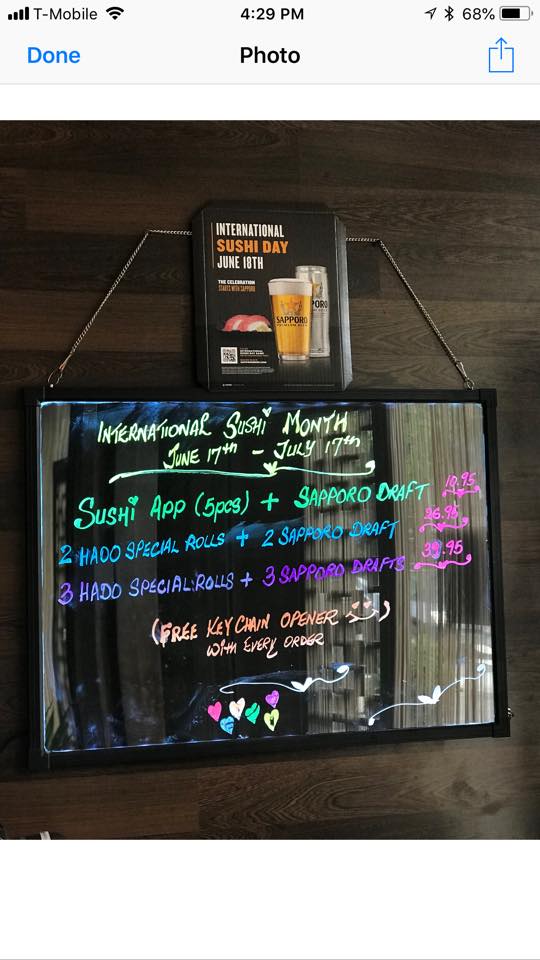 T-Mobile 4:29 PM 68%
Done Photo
INTERNATIONAL
SUSHI DAY
JUNE 18TH
THE CELEBRATION
STARTS WITH SAPPORO
SAPPORO
INTERNATIONAL SUSHI MONTH
JUNE 17th - JULY 17th
SUSHI APP (5pcs) + SAPPORO DRAFT 10.95
2 HADO SPECIAL ROLLS + 2 SAPPORO DRAFT 26.95
3 HADO SPECIAL ROLLS + 3 SAPPORO DRAFTS 39.95
(FREE KEY CHAIN OPENER )
WITH EVERY ORDER